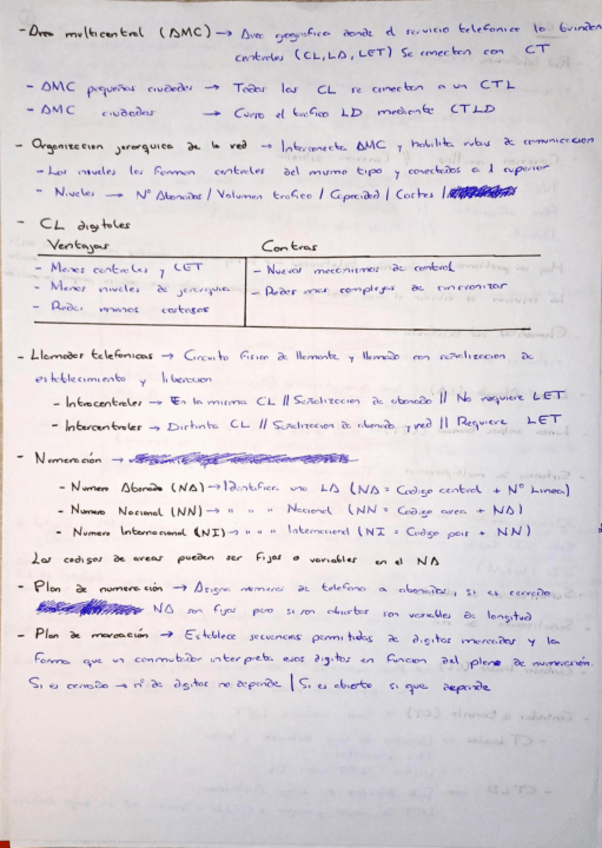 - Area multicentral (AMC) → Area geografica donde el servicio telefonico lo brindan
centrales (CL, LA, LET) Se conectan con CT
- AMC pequeñas ciudades → Todas las CL se conectan a un CTL
- AMC ciudades → Curso el trafico LD mediante CTLD
- Organizacion jerarquica de la red → Interconecta AMC y habilita rutas de comunicacion
- Los niveles los forman centrales del mismo tipo y conectados a 1 superior
- Niveles → Nº Abonados / Volumen trafico / Capacidad / Costes /
- CL digitales
Ventajas Contras
- Menos centrales y LET - Nuevos mecanismos de control
- Menos niveles de jerarquia - Redes mas complejas de sincronizar
- Redes menos costosas
- Llamadas telefonicas → Circuito fisico de llamante y llamado con señalizacion de
establecimiento y liberacion
- Intracentrales → En la misma CL // Señalizacion de abonado // No requiere LET
- Intercentrales → Distinta CL // Señalizacion de abonado y red // Requiere LET
- Numeración →
- Numero Abonado (NA) → Identifica una LA (NA = Codigo central + Nº Linea)
- Numero Nacional (NN) → " " " Nacional (NN = Codigo area + NA)
- Numero Internacional (NI) → " " " Internacional (NI = Codigo pais + NN)
Los codigos de areas pueden ser fijos o variables en el NA
- Plan de numeración → Asigna numeros de telefono a abonados, si es cerrado
NA son fijos pero si son abiertos son variables de longitud
- Plan de marcación → Establece secuencias permitidas de digitos marcados y la
forma que un conmutador interpreta esos digitos en funcion del plano de numeración.
Si es cerrado → nº de digitos no depende | Si es abierto si que depende